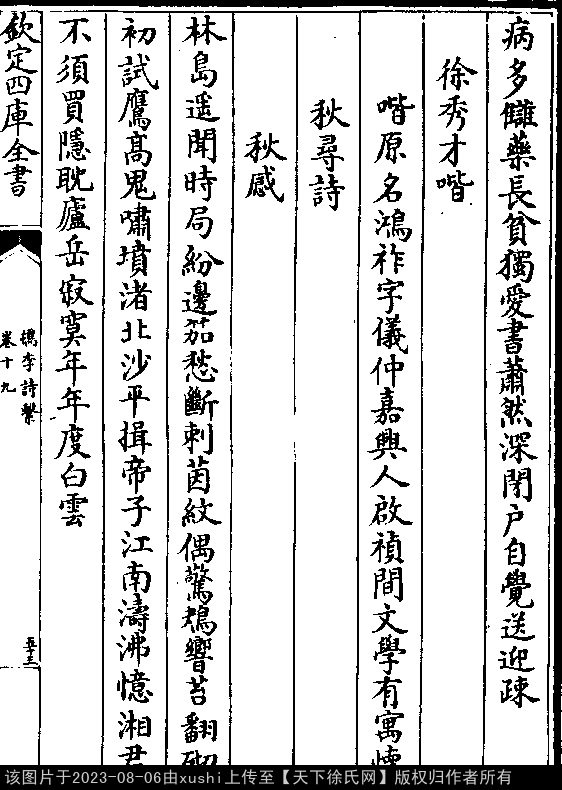 病多讎藥長貧獨愛書蕭然深閉户自覺送迎疎
徐秀才喈
喈原名鴻祚字儀仲嘉興人啟禎間文學有寓懷
秋尋詩
秋感
林島遥聞時局紛邊笳愁斷刺茵紋偶驚鵶響苔翻砌
初試鷹髙鬼嘯墳渚北沙平揖帝子江南濤沸憶湘君
不須買隱耽廬岳寂寞年年度白雲
欽定四庫全書
檇李詩繫
卷十九
五十三
该图片于2023-08-06由xushi上传至【天下徐氏网】版权归作者所有